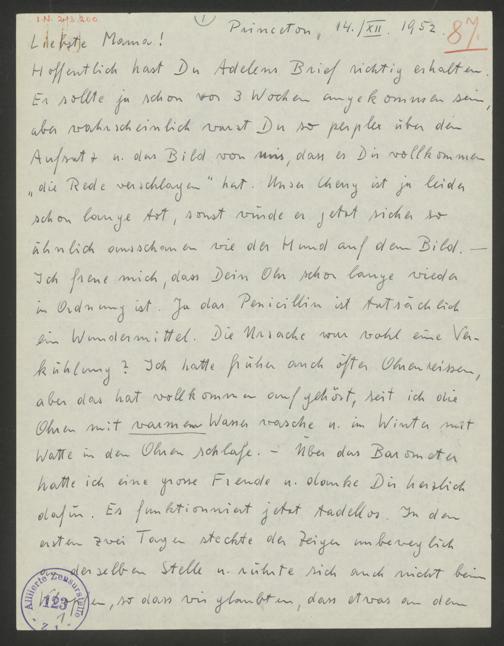 I.N. 213.200
1
Princeton, 14./XII. 1952.
87
Liebste Mama!
Hoffentlich hast Du Adelens Brief richtig erhalten.
Er sollte ja schon vor 3 Wochen angekommen sein,
aber wahrscheinlich warst Du so perplex über den
Aufsatz u. das Bild von mir, dass es Dir vollkommen
„die Rede verschlagen" hat. Unser ist ja leider
schon lange tot, sonst würde er jetzt sicher so
ähnlich ausschauen wie der Hund auf dem Bild. —
Ich freue mich, dass Dein Ohr schon lange wieder
in Ordnung ist. Ja das Penicillin ist tatsächlich
ein Wundermittel. Die Ursache war wohl eine Ver-
kühlung? Ich hatte früher auch öfter Ohrenreissen,
aber das hat vollkommen aufgehört, seit ich die
Ohren mit warmem Wasser wasche u. im Winter mit
Watte in den Ohren schlafe. – Über das Barometer
hatte ich eine grosse Freude u. danke Dir herzlich
dafür. Es funktioniert jetzt tadellos. In den
ersten zwei Tagen steckte der Zeiger unbeweglich
an derselben Stelle u. rührte sich auch nicht beim
Klopfen, so dass wir glaubten, dass etwas an dem
Alliierte Zensurstelle
123